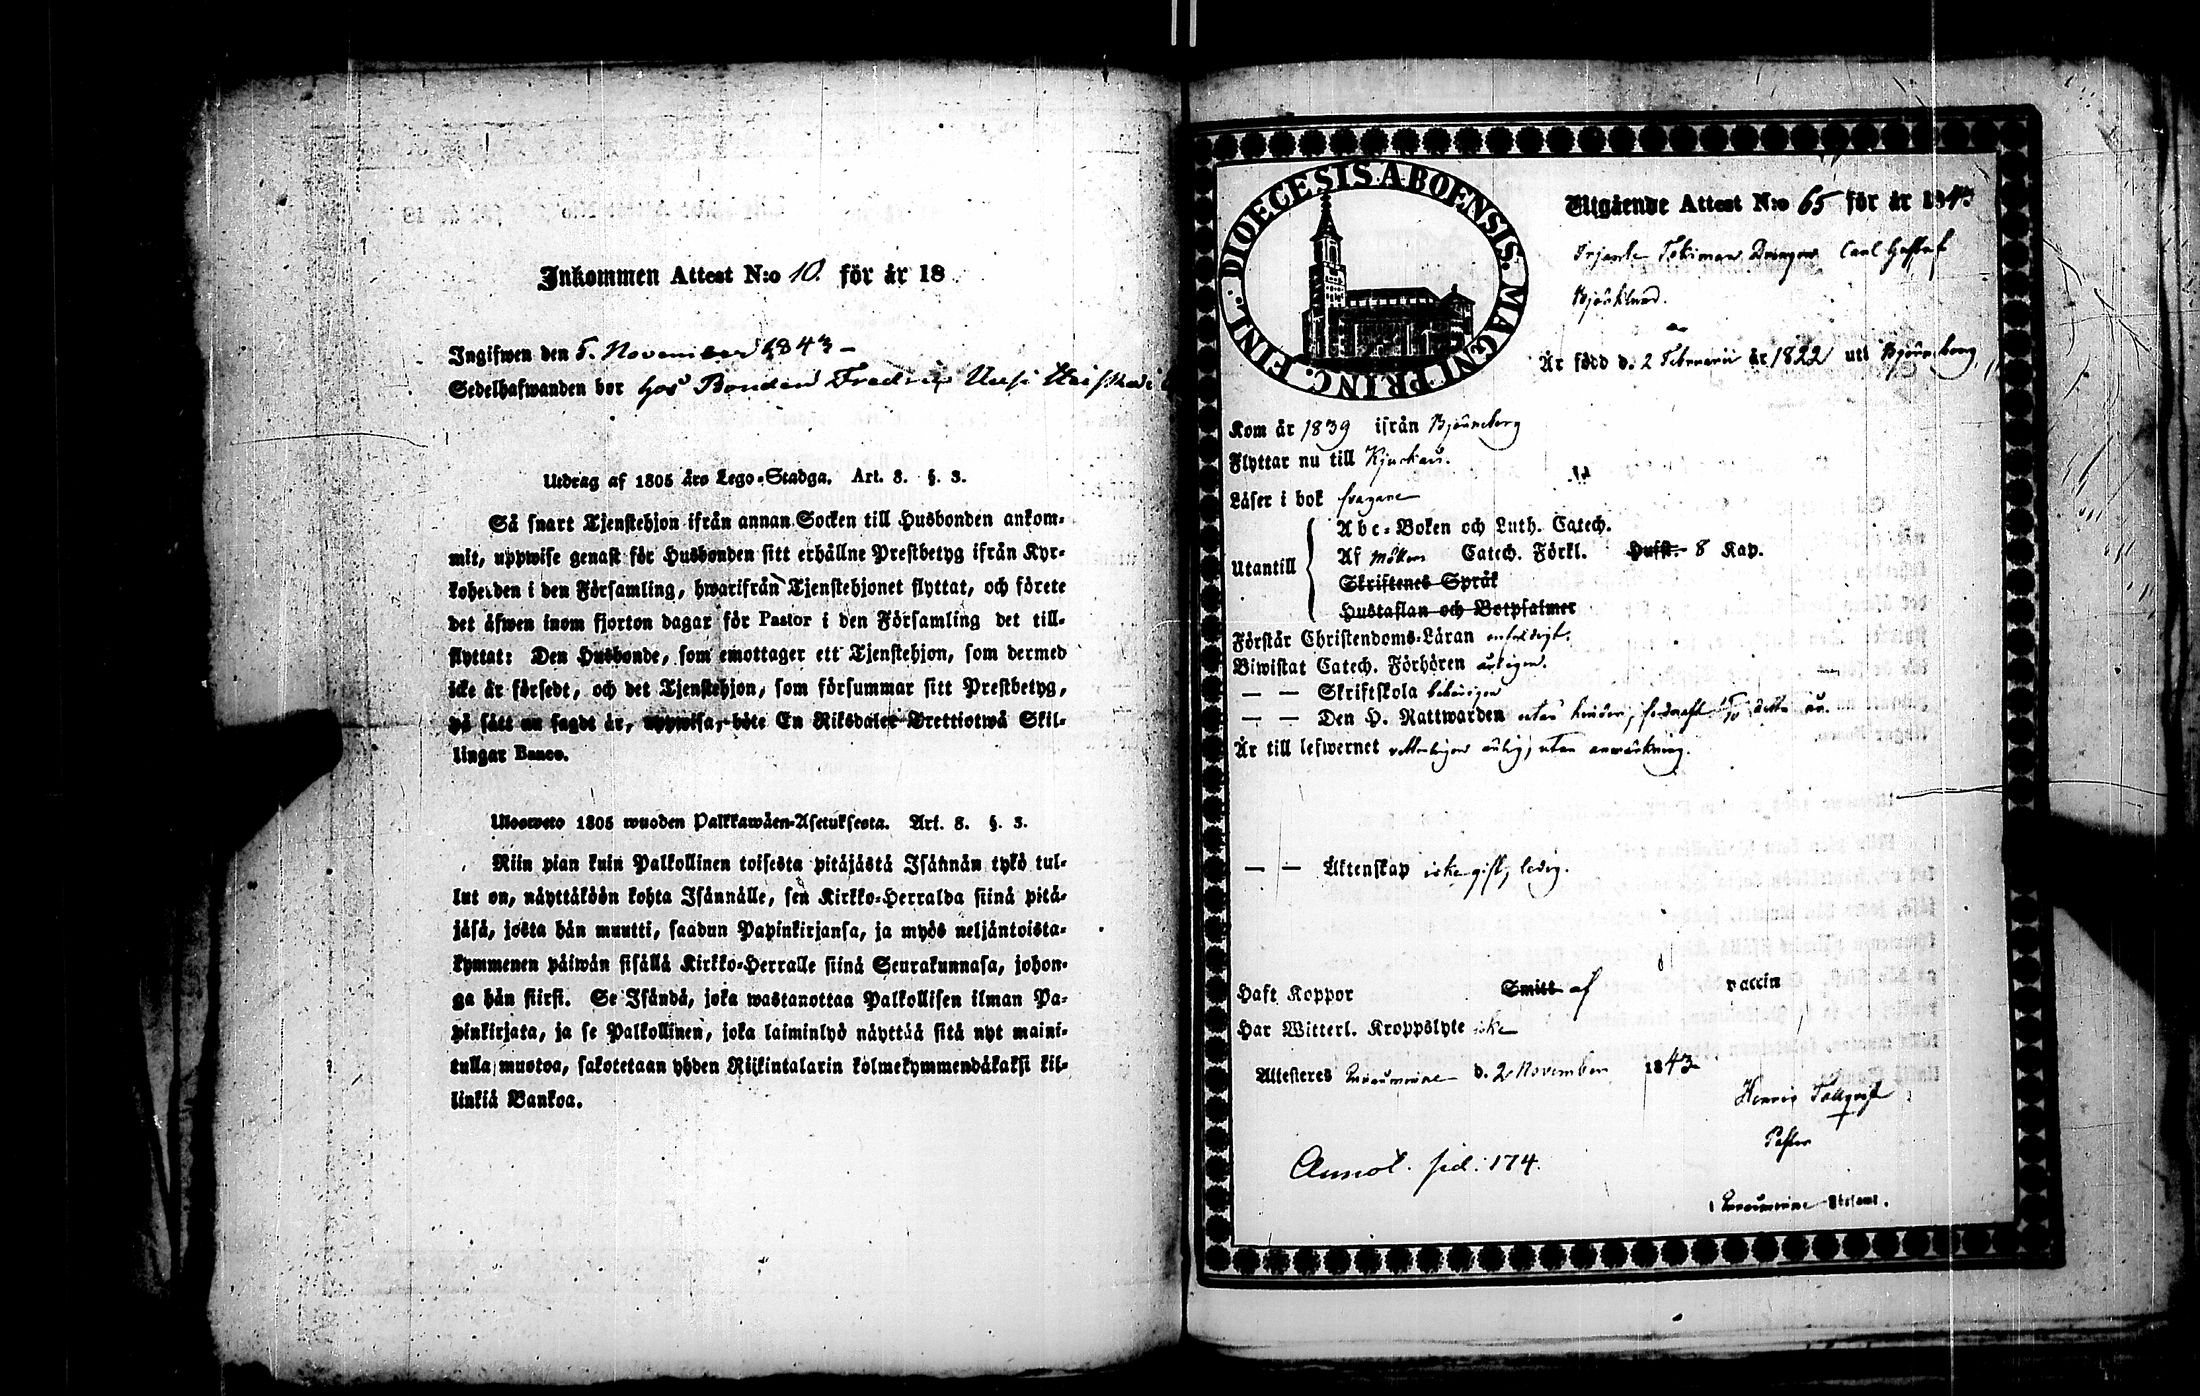 Inkommen Attest N:o 10. för år 18
Ingifwen den 5. November 1843 –
Sedelhafwanden bor hos Bonden Fredric Uusi
Utdrag af 1805 års Lego-Stadga. Art. 8. §. 3.
Så snart Tjenstehjon ifrån annan Socken till Husbonden ankom-
mit, uppwise genast för Husbonden sitt erhållne Prestbetyg ifrån Kyr-
koherden i den Församling, hwarifrån Tjenstehjonet flyttat, och förete
det äfwen inom fjorton dagar för Pastor i den Församling det till-
flyttat: Den Husbonde, som emottager ett Tjenstehjon, som dermed
icke är försedt, och det Tjenstehjon, som försummar sitt Prestbetyg,
på sätt nu sagdt är, uppwisa, böte En Riksdaler Trettiotwå Skil-
lingar Banco.
Ulosweto 1805 wuoden Palkkawäen-Asetuksesta. Art. 8. §. 3.
Niin pian kuin Palkollinen toisesta pitäjästä Isännän tykö tul-
lut on, näyttäköön kohta Isännälle, sen Kirkko-Herralda siinä pitä-
jäsä, josta hän muutti, saadun Papinkirjansa, ja myös neljäntoista-
kymmenen päiwän sisällä Kirkko-Herralle siinä Seurakunnasa, johon-
ga hän siirsi. Se Isändä, joka wastanottaa Palkollisen ilman Pa-
pinkirjata, ja se Palkollinen, joka laiminlyö näyttää sitä nyt maini-
tulla muotoa, sakotetaan yhden Riikintalarin kolmekymmendäkaksi kil-
linkiä Bankoa.
DIOECESIS ABOENSIS. MAGNI PRINC. FINL.
Utgående Attest N:o 65 för år 184
Drängen Carl Gustaf
Björklund.
Är född d. 2 Februarii år 1822 uti Björneborg
Kom år 1839 ifrån Björneborg
Flyttar nu till Kjuckais.
Läser i bok
Utantill
Abc-Boken och Luth. Catech.
Af Catech. Förkl. Hufst. 8 Kap.
Skriftenes Språk
Hustaflan och Botpsalmer
Förstår Christendoms-Läran enfaldigt.
Biwistat Catech. Förhören årligen.
— — Skriftskola behörigen
— — Den H. Nattwarden utan hinder, sednast detta år.
Är till lefwernet ärlig, utan anmärkning.
— — Äktenskap icke gift, ledig.
Haft Koppor Smitt af vaccin
Har Witterl. Kroppslyte icke
Attesteras d. 2 November 1843
Henric Tallqvist
Pastor
Annot. sid. 174.